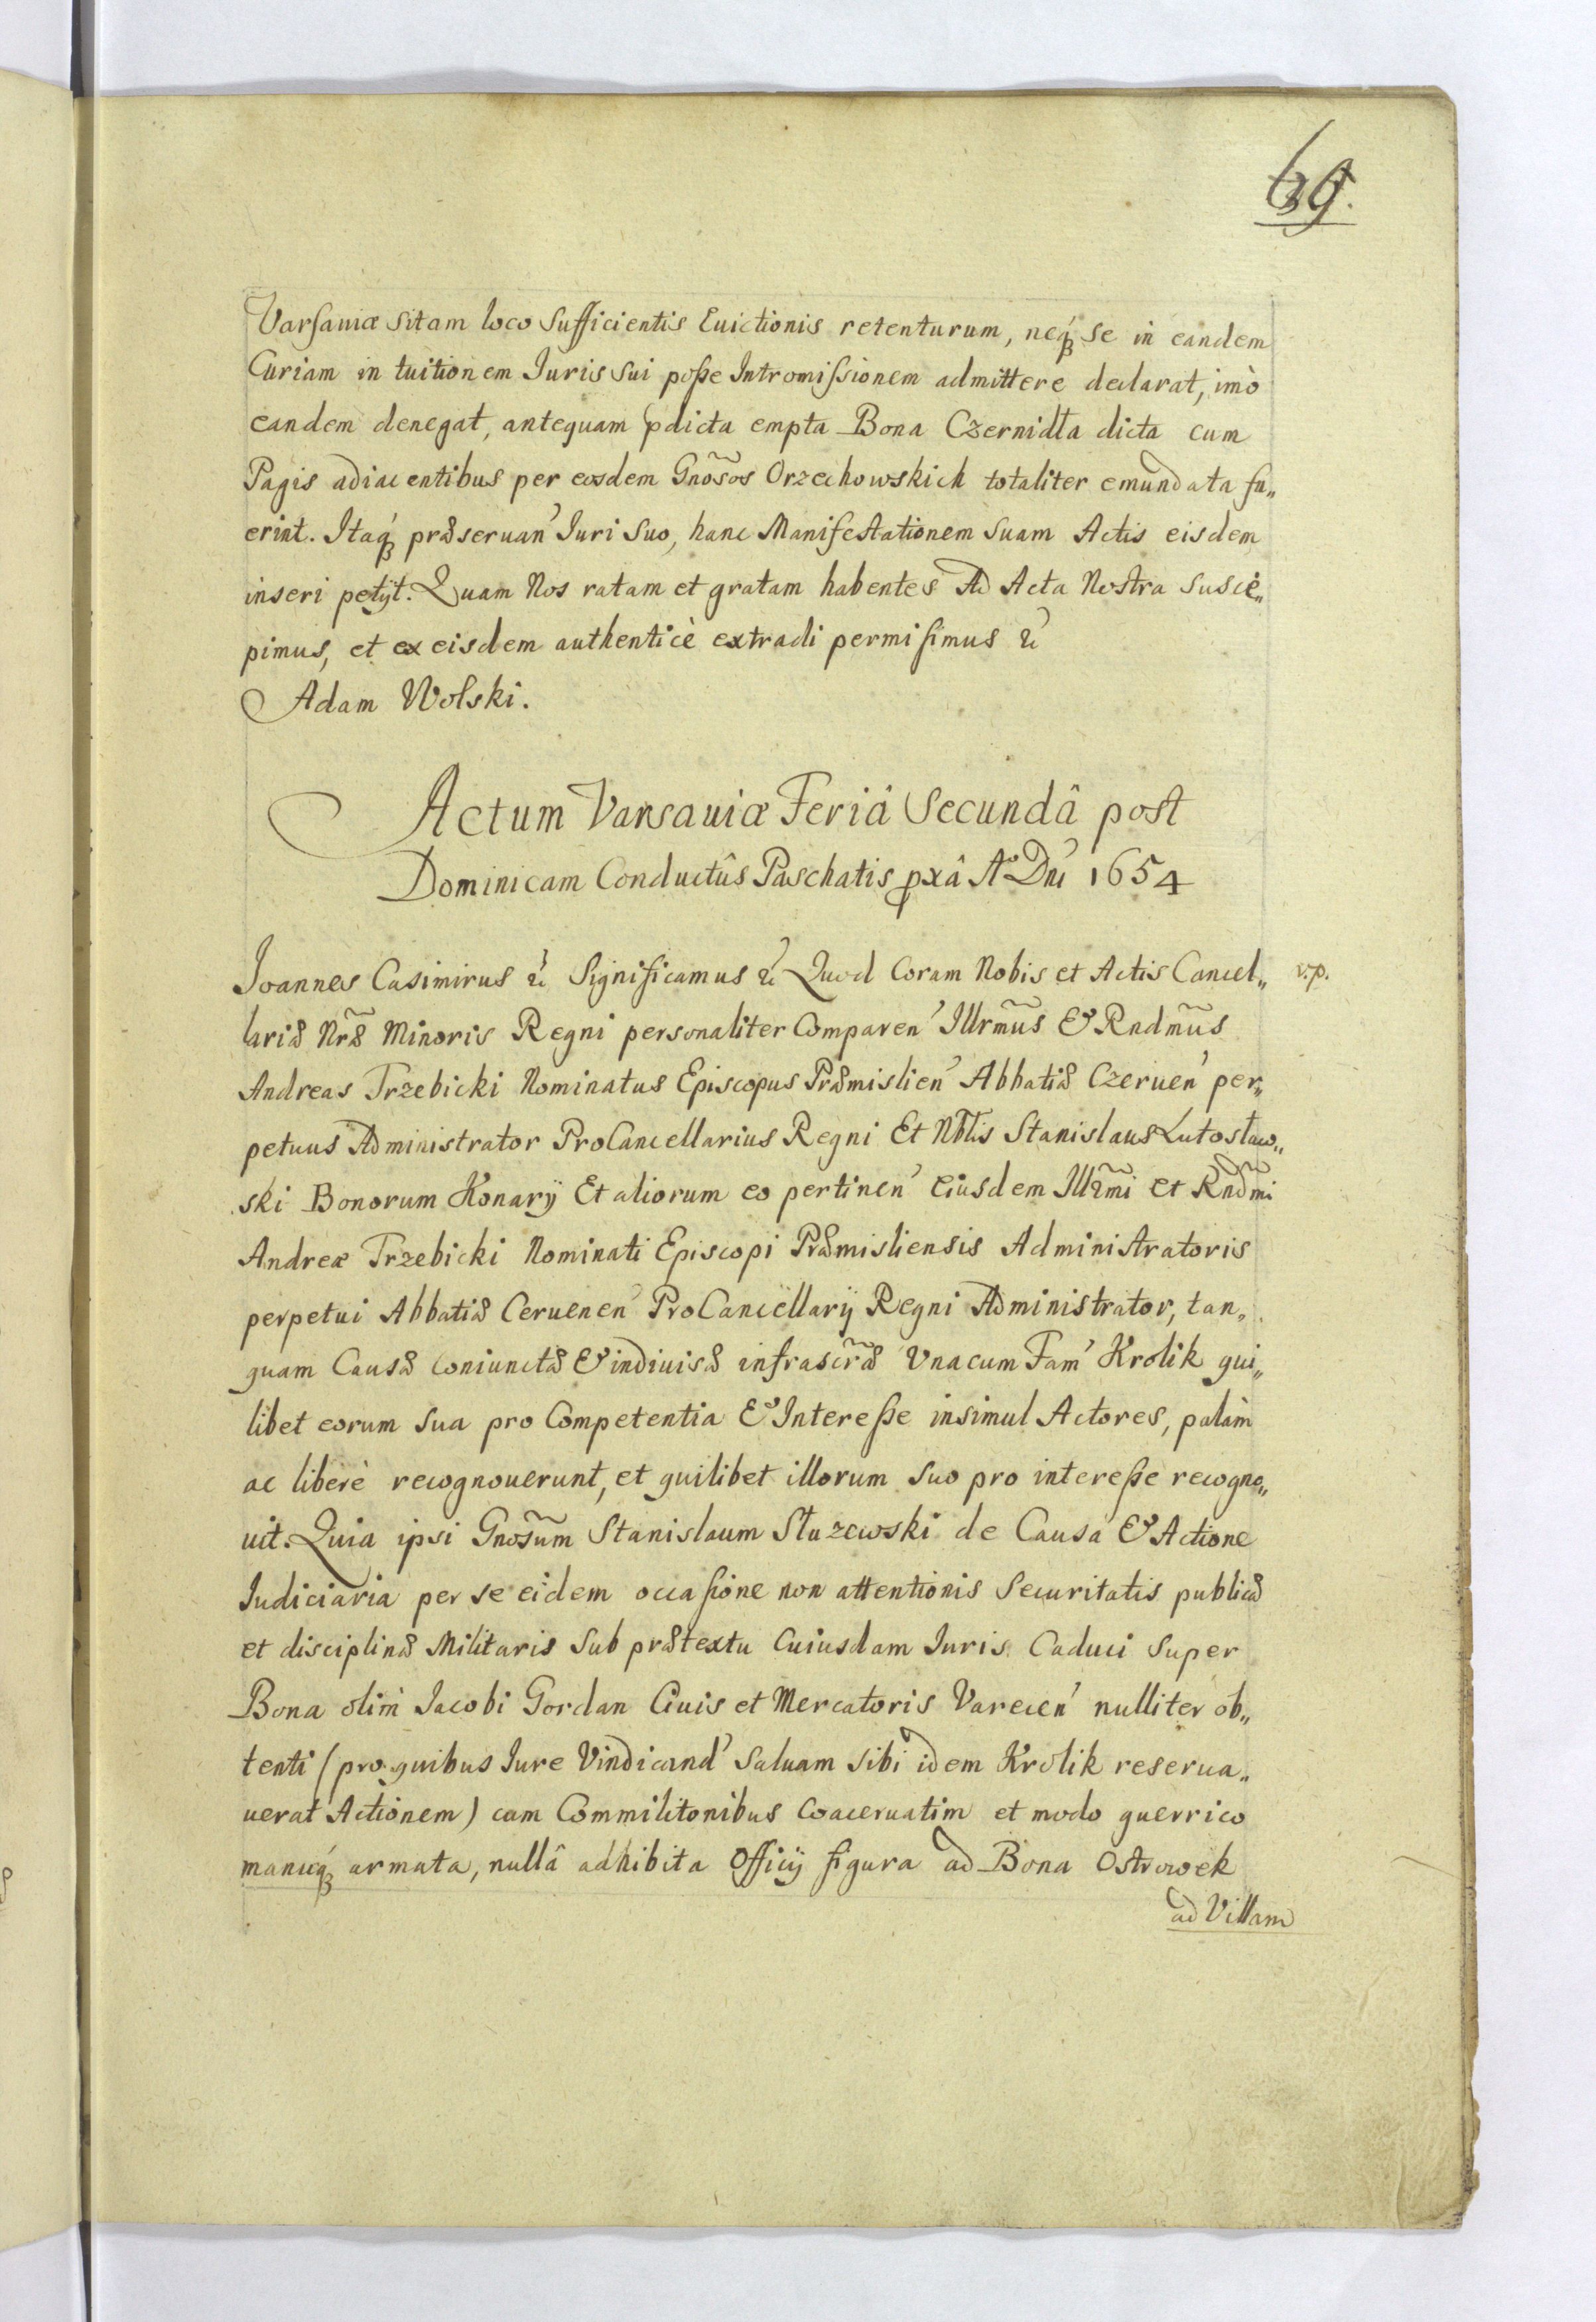 69.
Varsaviæ sitam loco sufficientis Euictionis retenturum, neq́ꝫ se in eandem
Curiam in tuitionem Iuris sui poſse Intromiſsionem admittere declarat, imò
eandem denegat, antequam p̱dicta empta Bona Czernidła dicta cum
Pagis adiacentibus per eosdem Gnõsos Orzechowskich totaliter emundata fu„
erint. Itaq́ꝫ præseruań Iuri suo, hanc Manifestationem suam Actis eisdem
inseri petÿt. Quam Nos ratam et gratam habentes Ad Acta Nostra susce„
pimus, et ex eisdem authenticè extradi permiſimus &c
Adam Wolski.
Actum Varsauiæ Feriâ Secundâ post
Dominicam Conductûs Paschatis p̱xâ A° Dńi 1654
Ioannes Casimirus &c Significamus &c Quod Coram Nobis et Actis Cancel„
v.p.
lariæ Nr̃æ Minoris Regni personaliter Compareń Illrm̃us & Rndm̃us
Andreas Trzebicki Nominatus Episcopus Præmislień Abbatiæ Czerueń per„
petuus Administrator ProCancellarius Regni Et Nb̃lis Stanislaus Lutosław„
ski Bonorum Konarÿ Et aliorum eo pertineń eiusdem Illr̃mi et Rñdm̃i
Andreæ Trzebicki Nominati Episcopi Præmisliensis Administratoris
perpetui Abbatiæ Cerueneń ProCancellarÿ Regni Administrator, tan„
quam Causæ coniunctæ & indiuisæ infrascr̃æ Vnacum Fam̃ Krolik qui„
libet eorum sua pro Competentia & Intereſse insimul Actores, palàm
ac liberè recognouerunt, et quilibet illorum suo pro intereſse recogno„
uit. Quia ipsi Gnõsum Stanislaum Słuzewski de Causa & Actione
Iudiciaria per se eidem occaſione non attentionis Securitatis publicæ
et disciplinæ Militaris sub prætextu Cuiusdam Iuris Caduci super
Bona olim̀ Iacobi Gordan Ciuis et Mercatoris Varecień nulliter ob„
tenti (pro quibus Iure Vindicand́ Saluam sibi idem Krolik reserua„
uerat Actionem) cum Commilitonibus Coaceruatim et modo guerrico
manuq́ꝫ armata, nullâ adhibita Officÿ figura ad Bona Ostrowek
ad Villam